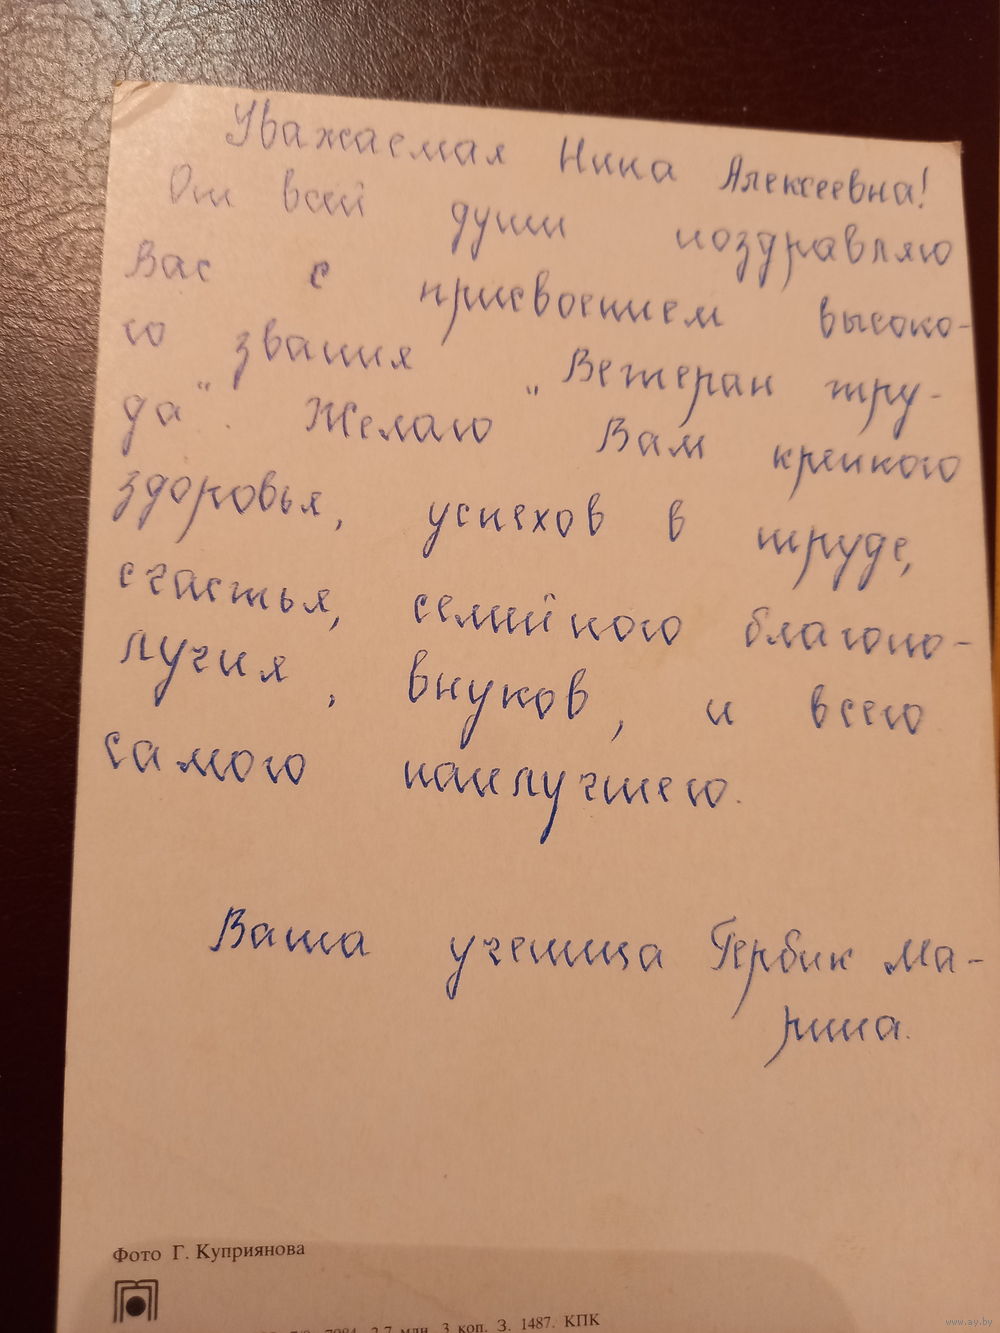 Уважаемая Нина Алексеевна!
От всей души поздравляю
Вас с присвоением высоко-
го звания „Ветеран тру-
да“. Желаю Вам крепкого
здоровья, успехов в труде,
счастья, семейного благопо-
лучия, внуков, и всего
самого наилучшего.
Ваша ученица Гербик Ма-
рина.
Фото Г. Куприянова
2,7 млн. 3 коп. З. 1487. КПК
www.ay.by